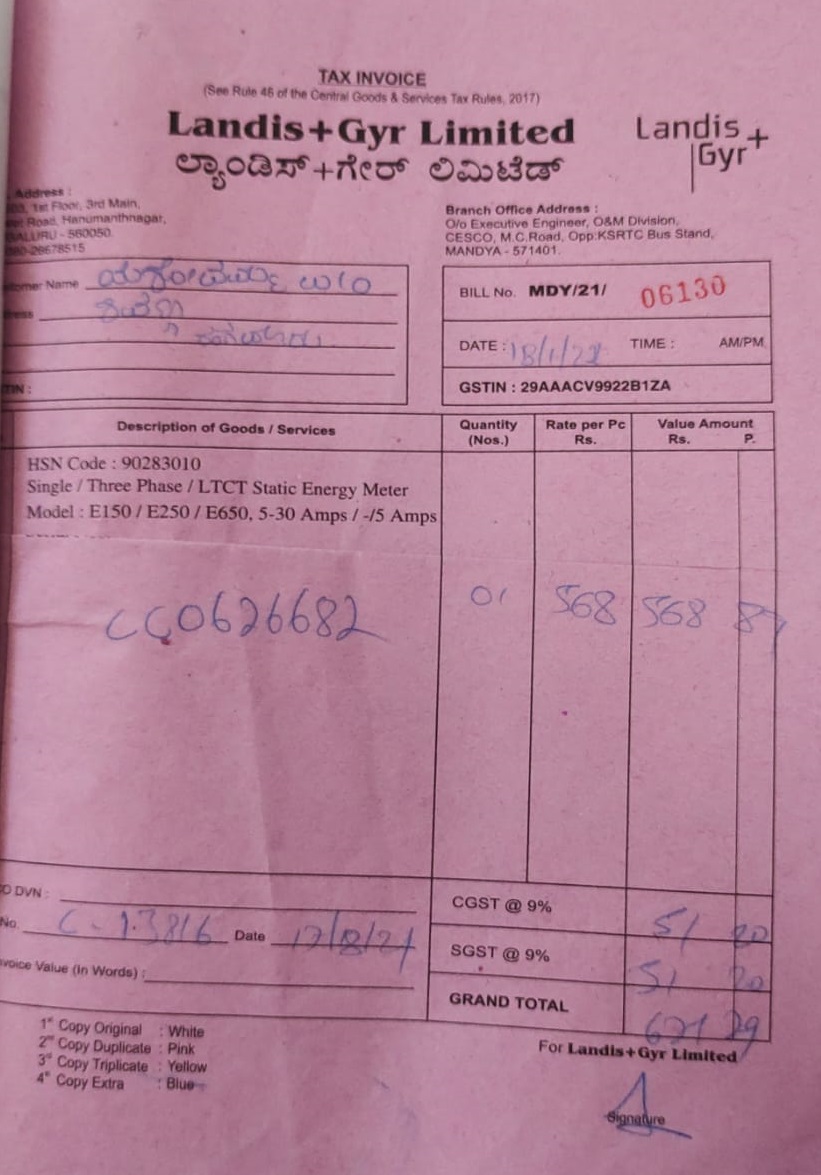 TAX INVOICE
(See Rule 46 of the Central Goods & Services Tax Rules, 2017)
Landis+Gyr Limited
ಲ್ಯಾಂಡಿಸ್+ಗೇರ್ ಲಿಮಿಟೆಡ್
Landis+
Gyr
Address :
1st Floor, 3rd Main,
Road, Hanumanthnagar,
- 560050.
26678515
Branch Office Address :
O/o Executive Engineer, O&M Division,
CESCO, M.C.Road, Opp:KSRTC Bus Stand,
MANDYA - 571401.
Name
BILL No. MDY/21/ 06130
DATE : TIME : AM/PM
GSTIN : 29AAACV9922B1ZA
Description of Goods / Services
Quantity (Nos.)
Rate per Pc Rs.
Value Amount Rs. P.
HSN Code : 90283010
Single / Three Phase / LTCT Static Energy Meter
Model : E150 / E250 / E650, 5-30 Amps / -/5 Amps
01 568 568
DVN :
No. Date
Value (In Words) :
CGST @ 9% 51
SGST @ 9% 51
GRAND TOTAL
1st Copy Original : White
2nd Copy Duplicate : Pink
3rd Copy Triplicate : Yellow
4th Copy Extra : Blue
For Landis+Gyr Limited
Signature